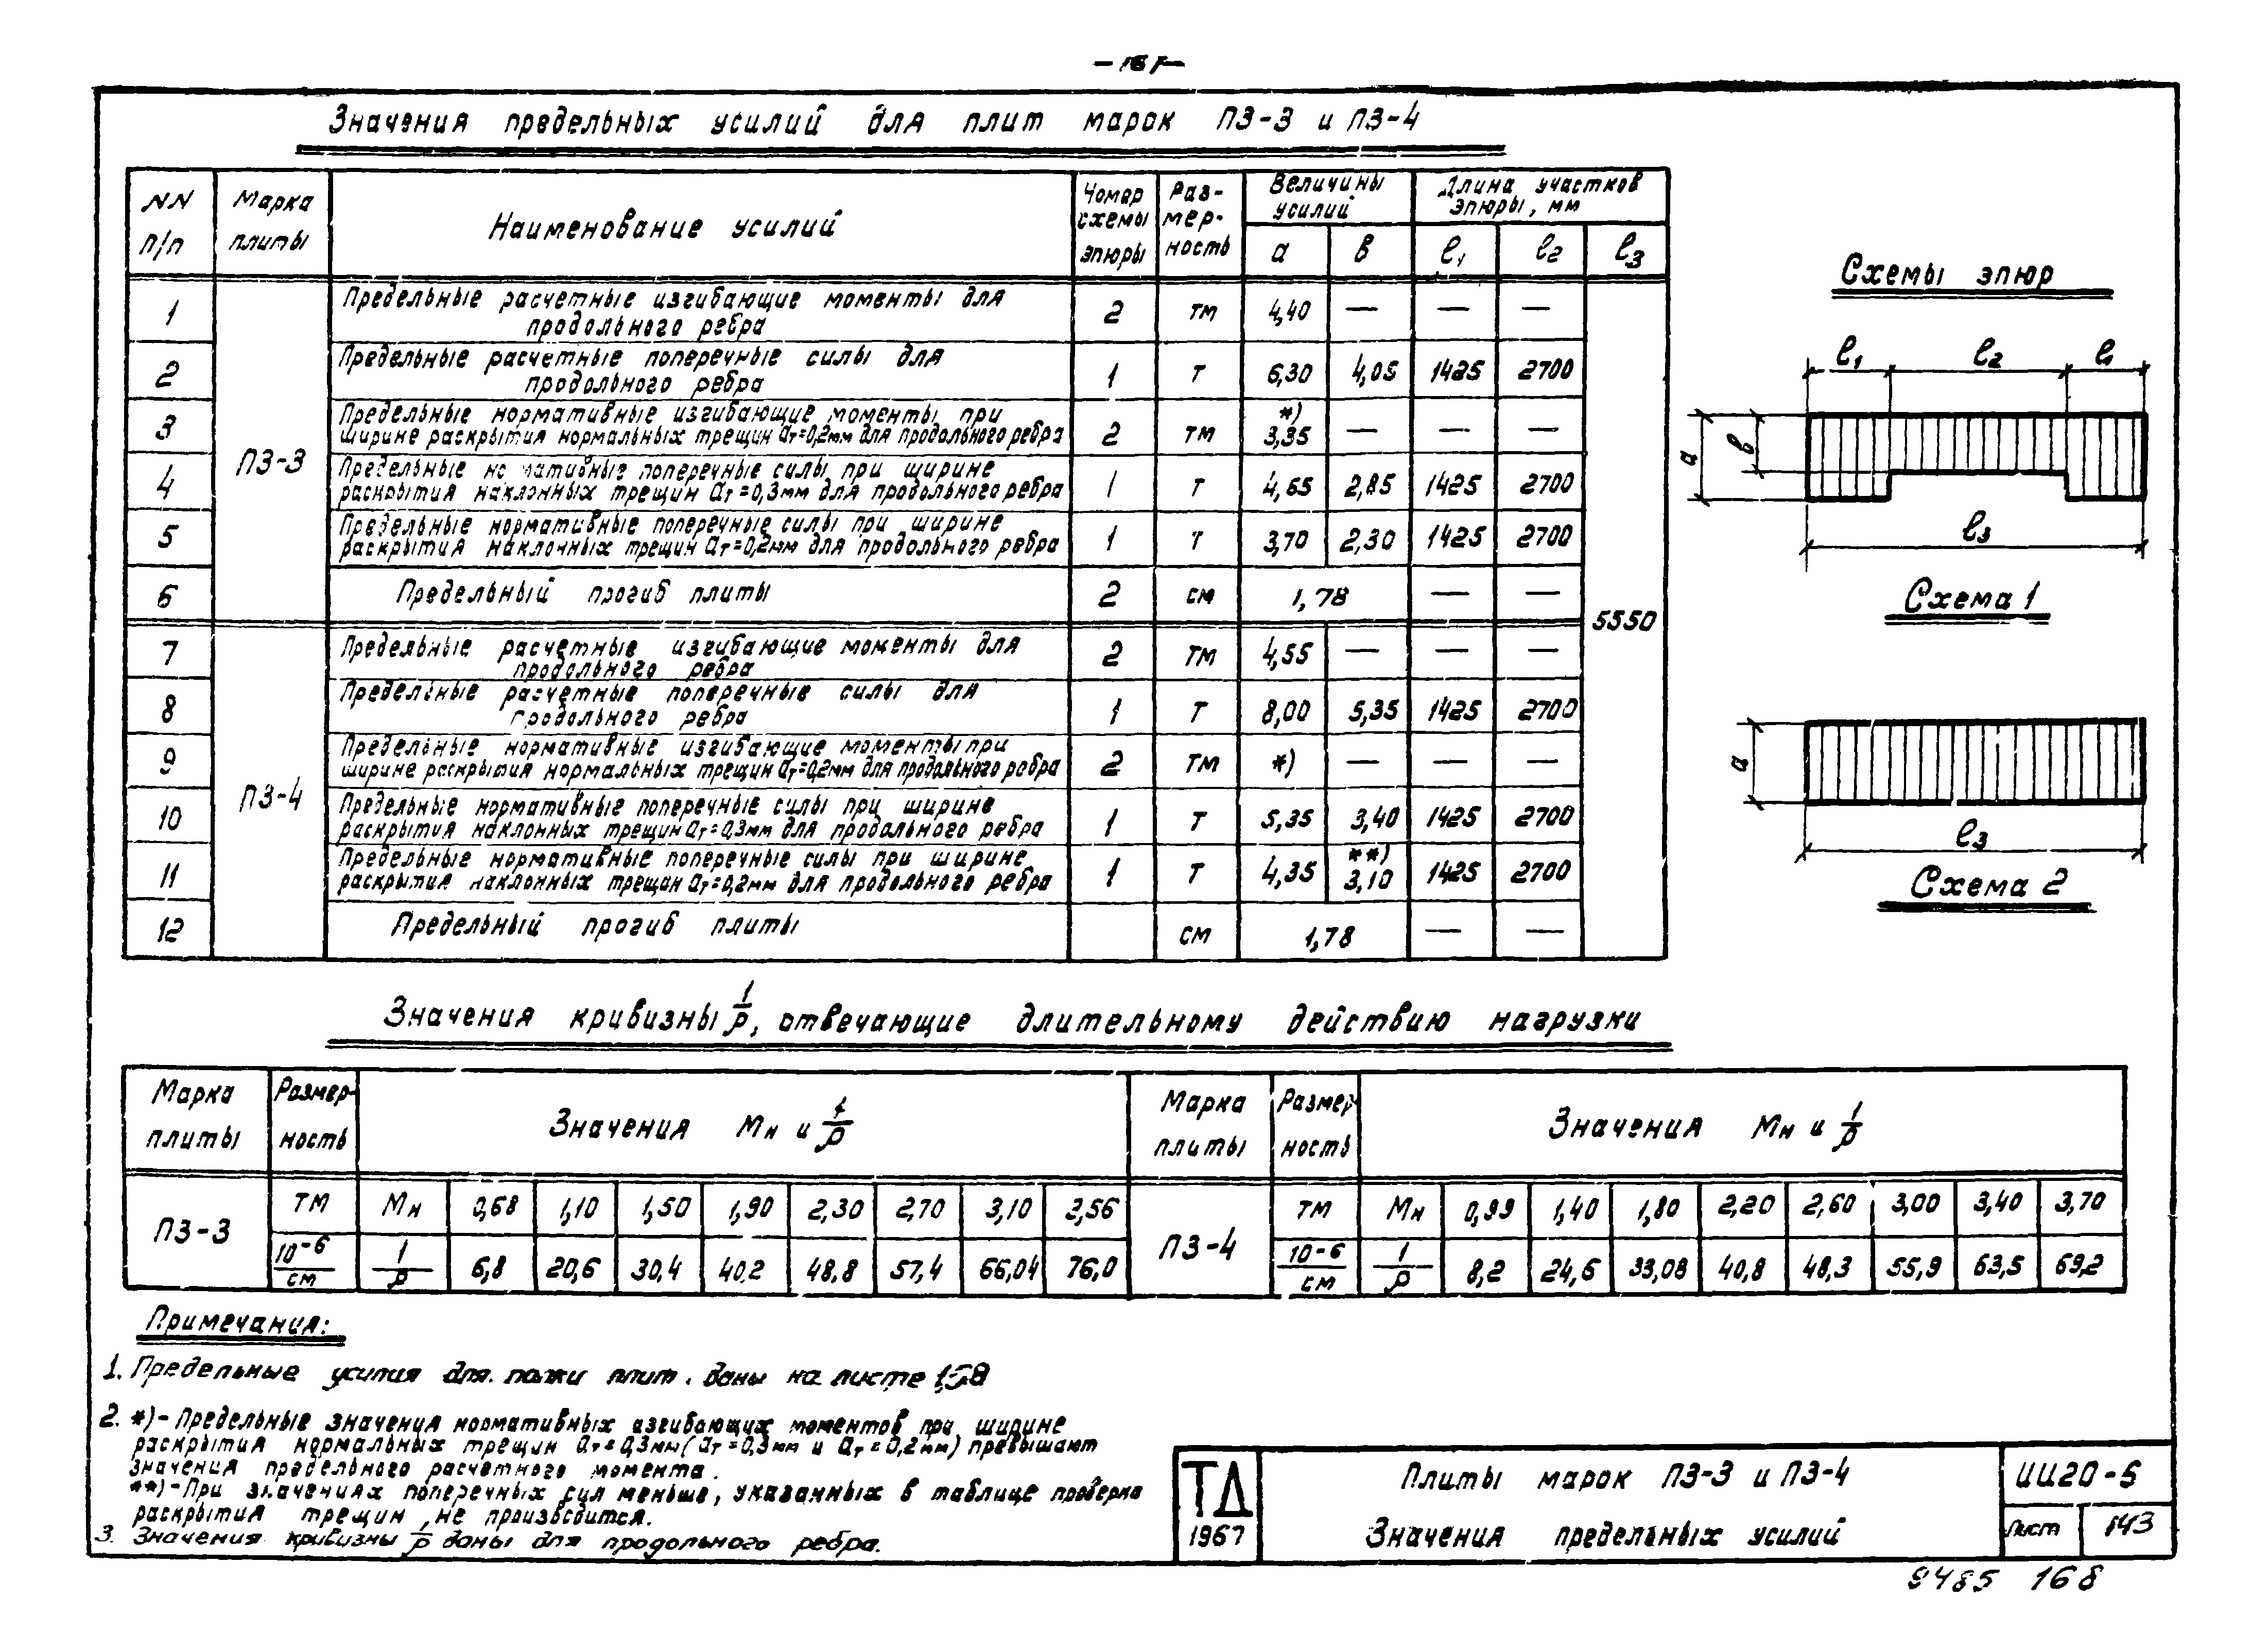 Значения предельных усилий для плит марок ПЗ-3 и ПЗ-4
NN п/п
Марка плиты
Наименование усилий
Номер схемы эпюры
Раз-мер-ность
Величины усилий
Длина участков эпюры, мм
а в l1 l2 l3
1 Предельные расчетные изгибающие моменты для продольного ребра 2 тм 4,40 — — —
2 Предельные расчетные поперечные силы для продольного ребра 1 т 6,30 4,05 1425 2700
3 Предельные нормативные изгибающие моменты при ширине раскрытия нормальных трещин aт=0,2мм для продольного ребра 2 тм *) 3,35 — — —
ПЗ-3
4 Предельные нормативные поперечные силы при ширине раскрытия наклонных трещин aт=0,3мм для продольного ребра 1 т 4,65 2,85 1425 2700
5 Предельные нормативные поперечные силы при ширине раскрытия наклонных трещин aт=0,2мм для продольного ребра 1 т 3,70 2,30 1425 2700
6 Предельный прогиб плиты 2 см 1,78 — —
5550
7 Предельные расчетные изгибающие моменты для продольного ребра 2 тм 4,55 — — —
8 Предельные расчетные поперечные силы для продольного ребра 1 т 8,00 5,35 1425 2700
9 Предельные нормативные изгибающие моменты при ширине раскрытия нормальных трещин aт=0,2мм для продольного ребра 2 тм *) — — —
ПЗ-4
10 Предельные нормативные поперечные силы при ширине раскрытия наклонных трещин aт=0,3мм для продольного ребра 1 т 5,35 3,40 1425 2700
11 Предельные нормативные поперечные силы при ширине раскрытия наклонных трещин aт=0,2мм для продольного ребра 1 т 4,35 **) 3,10 1425 2700
12 Предельный прогиб плиты см 1,78 — —
Схемы эпюр
l1 l2 l1
а в
l3
Схема 1
а
l3
Схема 2
Значения кривизны 1/ρ, отвечающие длительному действию нагрузки
Марка плиты
Размер-ность
Значения Мн и 1/ρ
Марка плиты
Размер-ность
Значения Мн и 1/ρ
ПЗ-3
тм Мн 0,68 1,10 1,50 1,90 2,30 2,70 3,10 3,56
10-6/см 1/ρ 6,8 20,6 30,4 40,2 48,8 57,4 66,04 76,0
ПЗ-4
тм Мн 0,99 1,40 1,80 2,20 2,60 3,00 3,40 3,70
10-6/см 1/ρ 8,2 24,6 33,08 40,8 48,3 55,9 63,5 69,2
Примечания:
1. Предельные усилия для полки плит даны на листе
2. *)- Предельные значения нормативных изгибающих моментов при ширине
раскрытия нормальных трещин aт=0,3мм (aт=0,3мм и aт=0,2мм) превышают
значения предельного расчетного момента.
**)- При значениях поперечных сил меньше, указанных в таблице проверка
раскрытия трещин, не производится.
3. Значения кривизны 1/ρ даны для продольного ребра.
ТД
1967
Плиты марок ПЗ-3 и ПЗ-4
Значения предельных усилий
ИИ20-5
Лист 143
9485 168